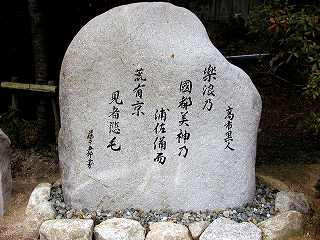 高市黒人
樂浪乃
國都美神乃
浦佐備而
荒有京
見者悲毛